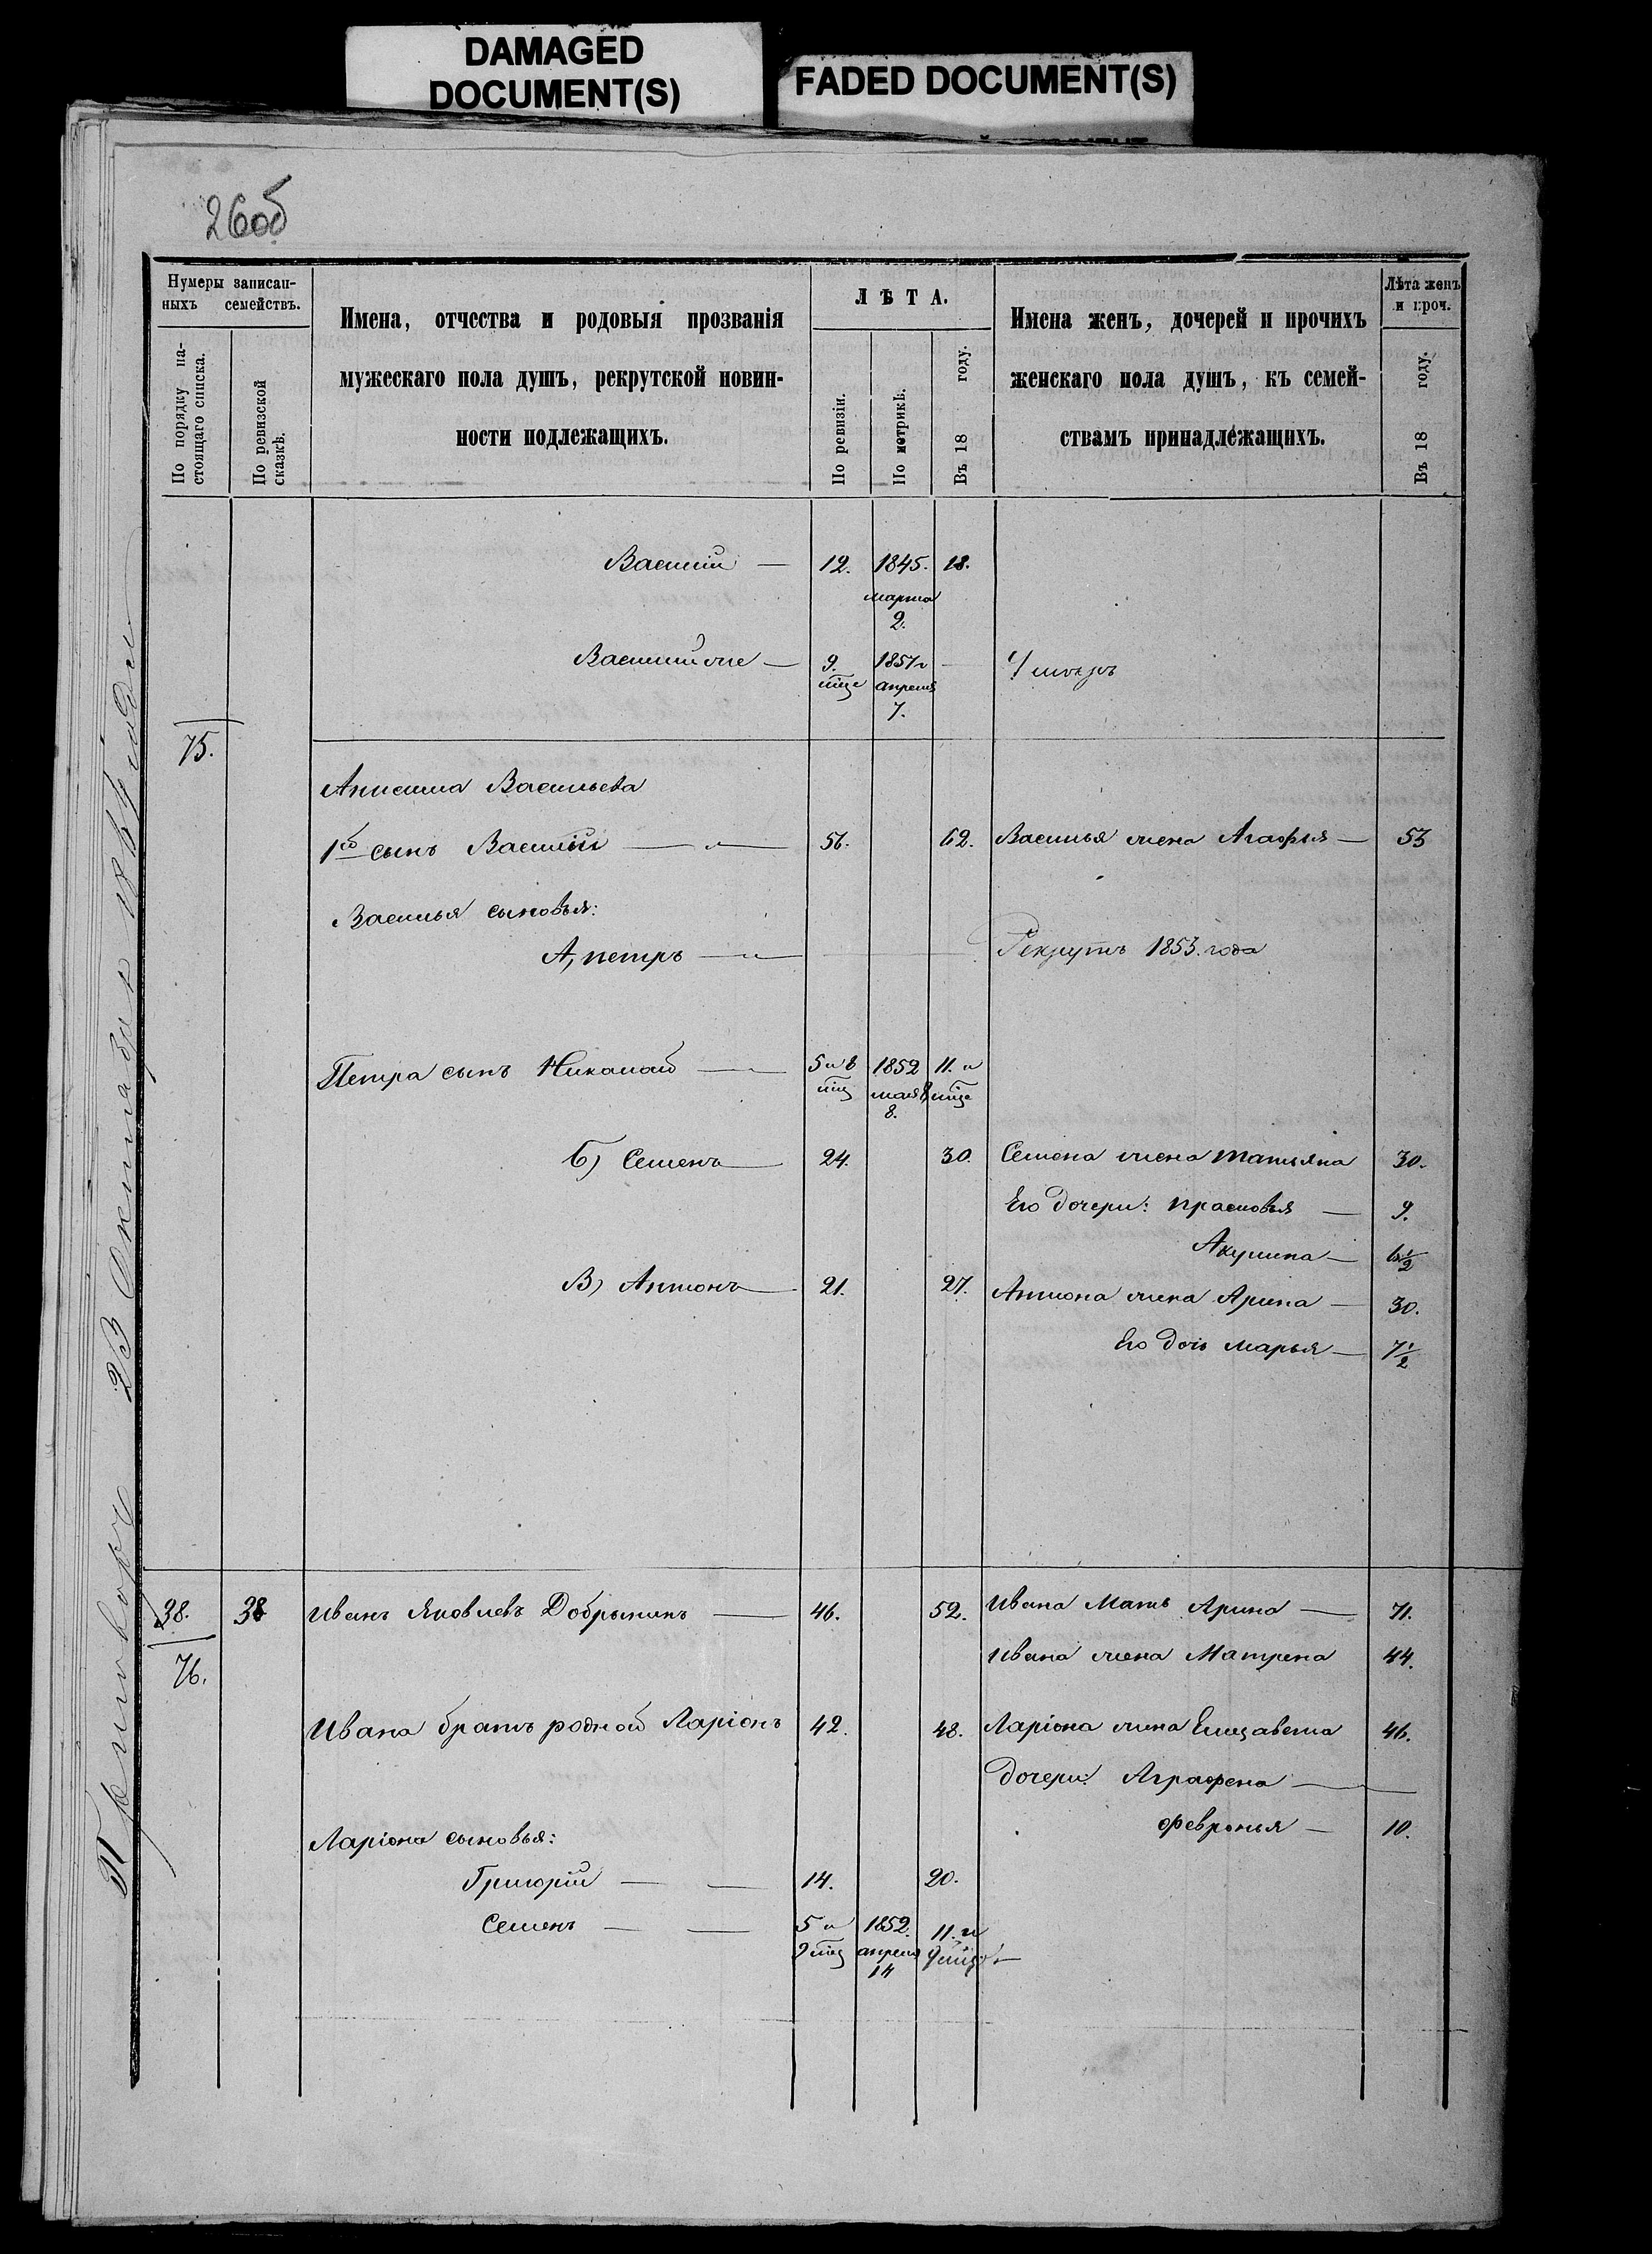 DAMAGED
DOCUMENT(S)
FADED DOCUMENT(S)
260б
Нумеры записан-
ныхъ семействъ.
По порядку на-
стоящаго списка.
По ревизской
сказкѣ.
Имена, отчества и родовыя прозванія
мужескаго пола душъ, рекрутской повин-
ности подлежащихъ.
ЛѢТА.
По ревизіи.
По метрикѣ.
Въ 18 году.
Имена женъ, дочерей и прочихъ
женскаго пола душъ, къ семей-
ствамъ принадлежащихъ.
Лѣта женъ
и проч.
Въ 18 году.
Василій — 12. 1845. 18.
марта
2.
Василий же — 9. 1857 —
мце апреля
7.
75.
Анисима Васильева
1й сынъ Василій — 56. 62. Василья жена Агафья — 53
Василья сыновья:
А, петръ — Рекрутъ 1853. года
Петра сынъ Николай — 5 и 8 1852 11. и
мц мая мце
8.
Б) Семенъ — 24. 30. Семена жена татьяна 30.
Его дочери: прасковья — 9.
Акулина — 6 1/2
В) Антонъ — 21. 27. Антона жена Арина — 30.
Его дочь марья — 7 1/2
38. 38 Иванъ Яковлевъ Добрынинъ — 46. 52. Ивана Мать Арина — 71.
76.
Ивана жена Матрена 44.
Ивана братъ родной Ларіонъ 42. 48. Ларіона жена Елизавета 46.
дочери: Аграфена —
февронья — 10.
Ларіона сыновья:
Григорій — 14. 20.
Семенъ — 5 и 1852. 11. и
9 мц апреля 9 мцов
14
23 Октября 1864 года